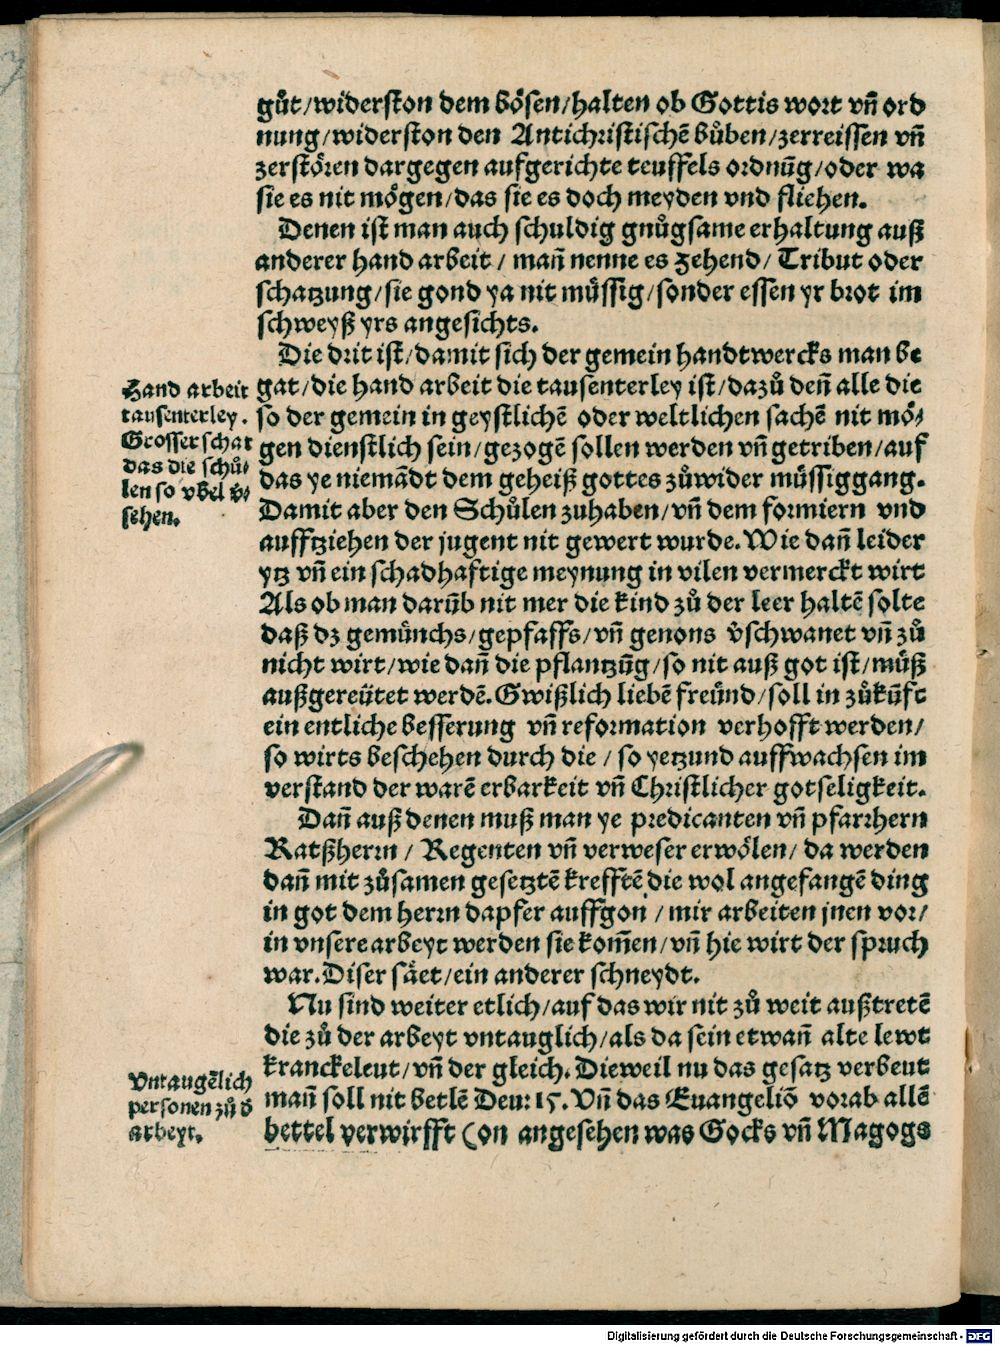 guͦt/widerston dem boͤsen/halten ob Gottis wort vñ ord
nung/widerston den Antichristischē buͦben/zerreissen vñ
zerstoͤren dargegen auffgerichte teuffels ordnūg/oder wa
sie es nit moͤgen/das sie es doch meyden vnd fliehen.
Denen ist man auch schuldig gnuͦgsame erhaltung auß
anderer hand arbeit/ mañ nenne es Zehend/ Tribut oder
schatzung/sie gond ya nit muͤssig/sonder essen yr brot im
schweyß yrs angesichts.
Die drit ist/damit sich der gemein handtwercks man be
Hand arbeit
tausenterley.
Grosser schat
das die schuͦ-
len so vbel v̄-
sehen.
gat/die hand arbeit die tausenterley ist/dazuͦ deñ alle die
so der gemein in geystlichē oder weltlichen sachē nit moͤ-
gen dienstlich sein/gezogē sollen werden vñ getriben/auf
das ye niemādt dem geheiß gottes zuͦwider muͤssiggang.
Damit aber den Schuͦlen zuhaben/vñ dem formiern vnd
aufftziehen der jugent nit gewert wurde. Wie dañ leider
ytz vñ ein schadhaftige meynung in vilen vermerckt wirt
Als ob man darūb nit mer die kind zuͦ der leer haltē solte
daß dz gemuͤnchs/gepfaffs/vñ genons v̄schwanet vñ zuͦ
nicht wirt/wie dañ die pflantzūg/so nit auß got ist/muͤß
außgereuͤtet werdē. Gwißlich liebē freuͤnd/soll in zuͦkūft
ein entliche besserung vñ reformation verhofft werden/
so wirts beschehen durch die/so yetzund auffwachsen im
verstand der warē erbarkeit vñ Christlicher gotseligkeit.
Dañ auß denen muß man ye predicanten vñ pfarrhern
Ratßherrn/ Regenten vñ verweser erwoͤlen/ da werden
dañ mit zuͦsamen gesetztē krefftē die wol angefangē ding
in got dem herrn dapfer auffgon/mir arbeiten jnen vor/
in vnsere arbeyt werden sie kom̄en/vñ hie wirt der spruch
war. Diser saͤet/ein anderer schneydt.
Nu sind weiter etlich/auf das wir nit zuͦ weit außtretē
die zuͦ der arbeyt vntauglich/als da sein etwañ alte lewt
kranckeleut/vñ der gleich. Dieweil nu das gesatz verbeut
Vntaugēlich
personen zuͦ d̄
arbeyt.
mañ soll nit betlē Deu: 15. Vñ das Euangeliō vorab allē
bettel verwirfft (on angesehen was Gocks vñ Magogs
Digitalisierung gefördert durch die Deutsche Forschungsgemeinschaft - DFG